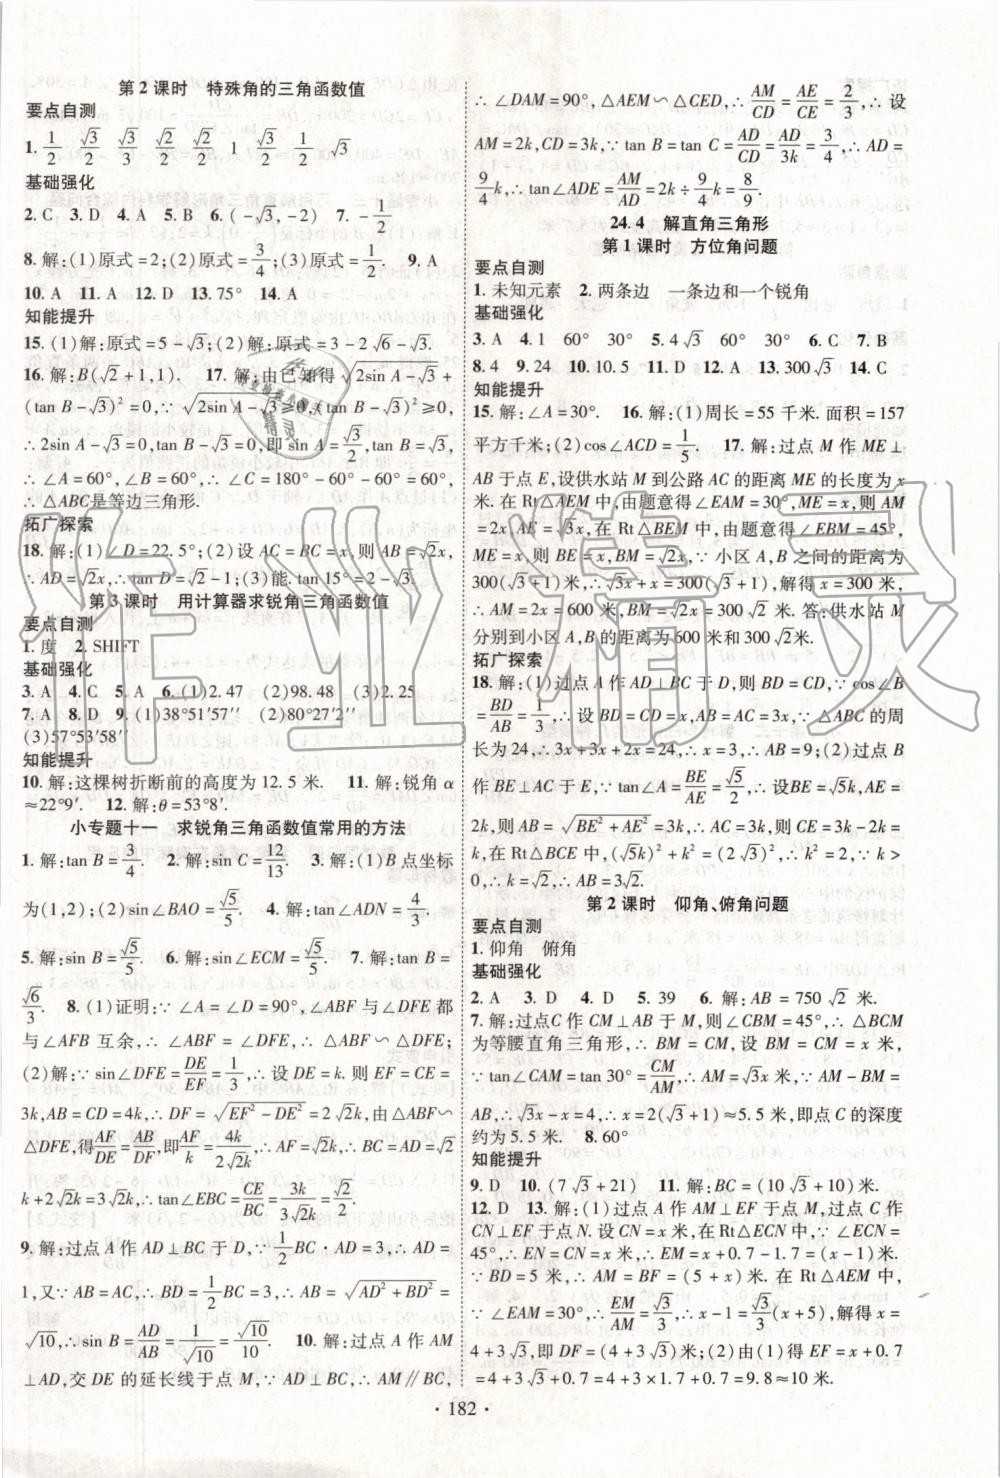 第2课时　特殊角的三角函数值
要点自测
1. 1/2　√3/2　√2/2　√2/2　1　√3/2　1/2　√3
基础强化
2. C　3. D　4. A　5. B　6. (−√3,−2)　7. −1/2
8. 解:(1)原式=2;(2)原式=3/4;(3)原式=1/2.　9. A
10. A　11. A　12. D　13. 75°　14. A
知能提升
15. (1)解:原式=5−√3;(2)解:原式=3−2√6−√3.
16. 解:B(√2+1,1).　17. 解:由已知得√(2sin A−√3)+
(tan B−√3)²=0,∵√(2sin A−√3)≥0,(tan B−√3)²≥0,
∴2sin A−√3=0,tan B−√3=0,即 sin A=√3/2,tan B=√3,
∴∠A=60°,∠B=60°,∴∠C=180°−60°−60°=60°,
∴△ABC是等边三角形.
拓广探索
18. 解:(1)∠D=22.5°;(2)设AC=BC=x,则AB=√2x,
∴AD=√2x,∴tan D=√2−1;(3)能. tan 15°=2−√3.
第3课时　用计算器求锐角三角函数值
要点自测
1. 度　2. SHIFT
基础强化
3. A　4. C　5. A　6. (1)2.47　(2)98.48　(3)2.25
7. A　8. D　9. (1)38°51′57″　(2)80°27′2″
(3)57°53′58″
知能提升
10. 解:这棵树折断前的高度为12.5米.　11. 解:锐角α
≈22°9′.　12. 解:θ=53°8′.
小专题十一　求锐角三角函数值常用的方法
1. 解:tan B=3/4.　2. 解:sin C=12/13.　3. 解:(1)B点坐标
为(1,2);(2)sin∠BAO=√5/5.　4. 解:tan∠ADN=4/3.
5. 解:sin B=√5/5.　6. 解:sin∠ECM=√5/5.　7. 解:tan B=
√6/3.　8. (1)证明:∵∠A=∠D=90°,∠ABF与∠DFE都
与∠AFB互余,∴∠ABF=∠DFE,∴△ABF∽△DFE;
(2)解:sin∠DFE=DE/EF=1/3,∴设DE=k,则EF=CE=
3k,AB=CD=4k,∴DF=√(EF²−DE²)=2√2k,由△ABF∽
△DFE,得AF/DE=AB/DF,即AF/k=4k/2√2k,∴AF=√2k,∴BC=AD=√2
k+2√2k=3√2k,∴tan∠EBC=CE/BC=3k/3√2k=√2/2.
9. 解:过点A作AD⊥BC于D,∵1/2BC·AD=3,∴AD=
1,又∵AB=AC,∴BD=1/2BC=3,∴AB=√(AD²+BD²)=
√10,∴sin B=AD/AB=1/√10=√10/10.　10. 解:过点A作AM
⊥AD,交DE的延长线于点M,∵AD⊥BC,∴AM∥BC,
∴∠DAM=90°,△AEM∽△CED,∴AM/CD=AE/CE=2/3,∴设
AM=2k,CD=3k,∵tan B=tan C=AD/CD=AD/3k=3/4,∴AD=
9/4k,∴tan∠ADE=AM/AD=2k÷9/4k=8/9.
24.4　解直角三角形
第1课时　方位角问题
要点自测
1. 未知元素　2. 两条边　一条边和一个锐角
基础强化
3. A　4. 1　60°　30°　5. 4√3　60°　30°　6. C　7. B
8. 4　9. 24　10. 10.5　11. D　12. A　13. 300√3　14. C
知能提升
15. 解:∠A=30°.　16. 解:(1)周长=55千米. 面积=157
平方千米;(2)cos∠ACD=1/5.　17. 解:过点M作ME⊥
AB于点E,设供水站M到公路AC的距离ME为x米,
∵在Rt△AEM中,由题意得∠EAM=30°,ME=x,则AM
=2x,AE=√3x,在Rt△BEM中,由题意得∠EBM=45°,
ME=x,则BE=x,BM=√2x,∵小区A,B之间的距离为
300(√3+1)米,∴√3x+x=300(√3+1),解得x=300米,
∴AM=2x=600米,BM=√2x=300√2米. 答:供水站M
分别到小区A,B的距离为600米和300√2米.
拓广探索
18. 解:(1)过点A作AD⊥BC于D,则BD=CD,∵cos∠B
=BD/AB=1/3,∴设BD=CD=x,AB=AC=3x,∵△ABC的周
长为24,∴3x+3x+2x=24,∴x=3,∴AB=9;(2)过点B
作BE⊥AC于E,∵tan A=BE/AE=√5/2,∴设BE=√5k,AE=
2k,则AB=√(BE²+AE²)=3k,∴AC=3k,则CE=3k−2k=
k,在Rt△BCE中,∴(√5k)²+k²=(2√3)²,∴k²=2,∵k>
0,∴k=√2,∴AB=3√2.
第2课时　仰角、俯角问题
要点自测
1. 仰角　俯角
基础强化
2. A　3. D　4. D　5. 39　6. 解:AB=750√2米.
7. 解:过点C作CM⊥AB于M,则∠CBM=45°,△BCM
为等腰直角三角形,∴BM=CM,设BM=CM=x米,
∵tan∠CAM=tan 30°=CM/AM,∴AM=√3x米,∵AM−BM=
AB,∴√3x−x=4,∴x=2(√3+1)≈5.5米,即点C的深度
约为5.5米.　8. 60°
知能提升
9. D　10. (7√3+21)　11. 解:BC=(10√3+10)米.
12. D　13. 解:(1)过点A作AM⊥EF于点M,过点C作
CN⊥EF于点N. 设CN=x米,在Rt△ECN中,∵∠ECN=
45°,∴EN=CN=x米,∴EM=x+0.7−1.7=(x−1)米.
∵BD=5米,∴AM=BF=(5+x)米. 在Rt△AEM中,
∵∠EAM=30°,∴EM/AM=√3/3,∴x−1=√3/3(x+5),解得x=
4+3√3,即DF=(4+3√3)米;(2)由(1)得EF=x+0.
7=4+3√3+0.7≈4+3×1.7+0.7=9.8≈10米.
· 182 ·